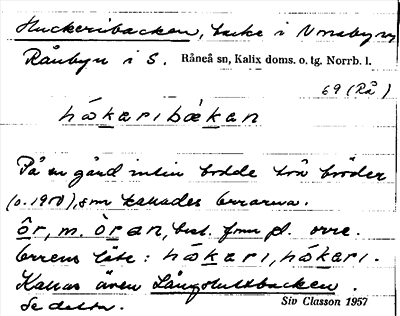 Huckeribacken, backe i Vonsbyn,
Rånbyn i S. Råneå sn, Kalix doms. o. tg. Norrb. l.
69 (Rå)
På en gård intill bodde två bröder
(o. 1900), som kallades orrarna.
òr, m. òran, best. form pl. orre.
orrens läte:
Kallas även Långslättbacken.
Se detta. Siv Classon 1957